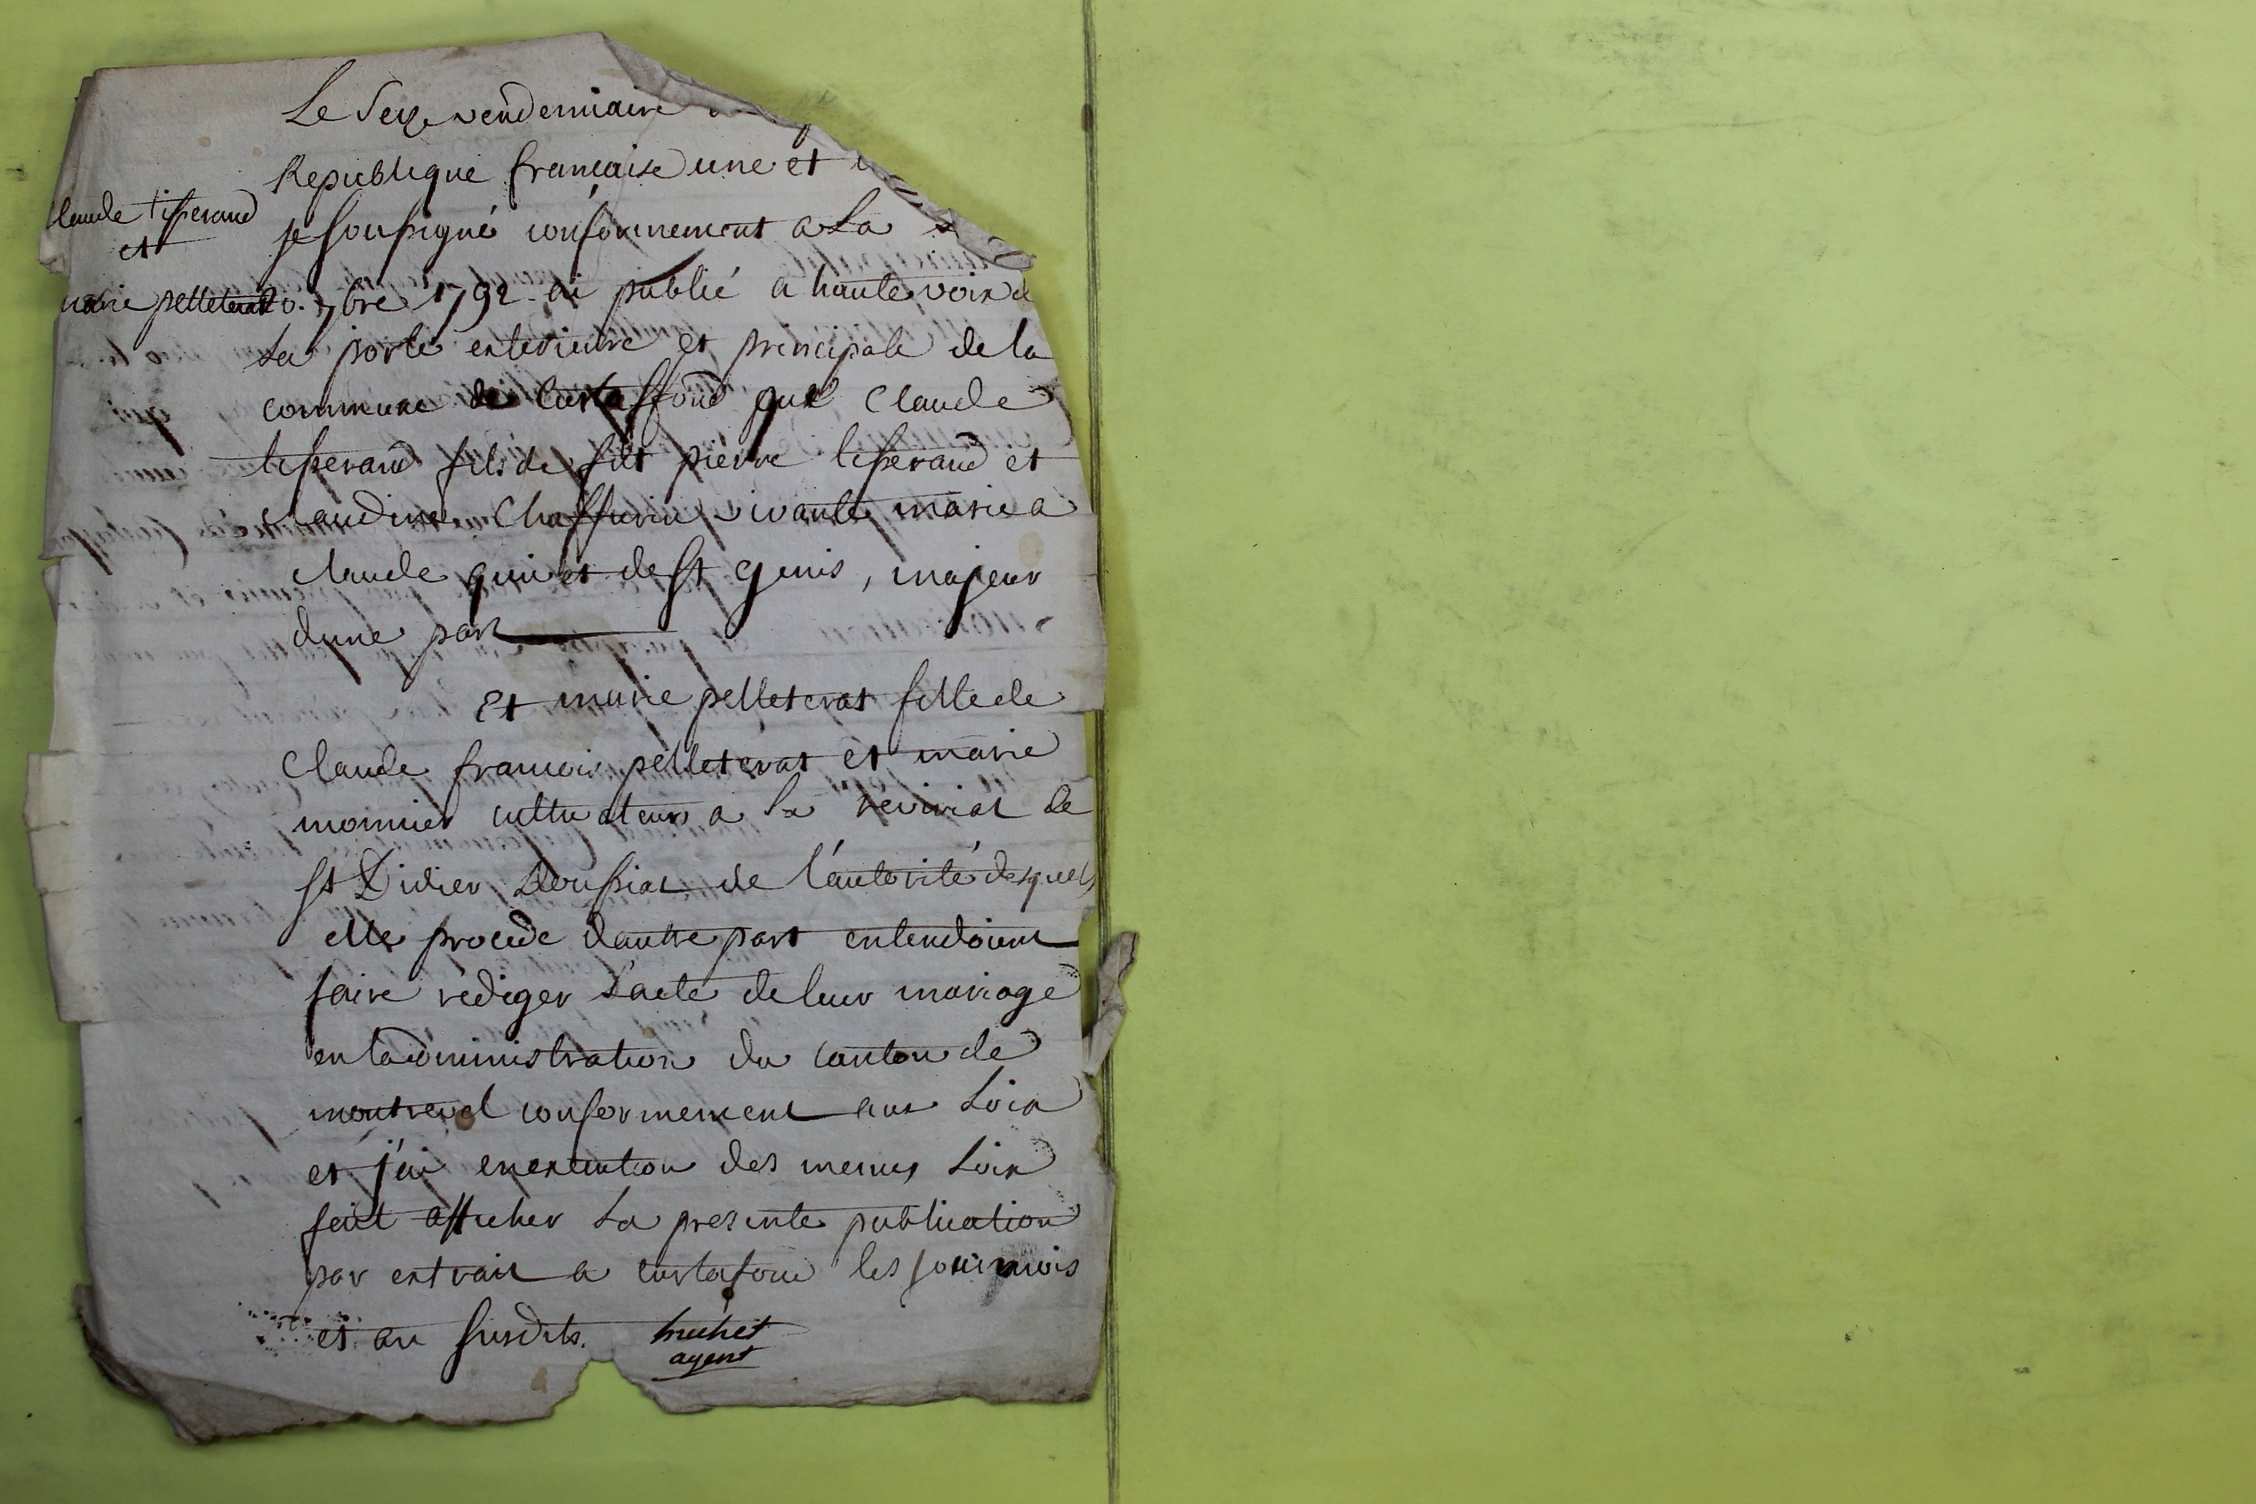 Le Seize vendemiaire
Republique francaise une et
Claude tisserand
et
marie pelleterat
je soussigné conformement a La
20. 7bre 1792 ai publié a haute voix
La porte exterieure et principale de la
commune de Curtaffond que Claude
tisserand fils de fut pierre tisserand et
Claudine Chaffurin vivante mariea
claude guinet de St genis, majeur
dune part
Et marie pelleterat fille de
Claude francois pelleterat et marie
monnier cultivateurs a La reviriat de
St Didier Doussiat de l'autorité desquels
elle procede dautre part entendoient
faire rédiger L'acte de leur mariage
en ladministration du canton de
montrevel conformement aux Loix
et j'ai en execution des memes Loix
fait afficher La presente publication
par extrait a curtafond les jour mois
et an susdits. bruchet
agent